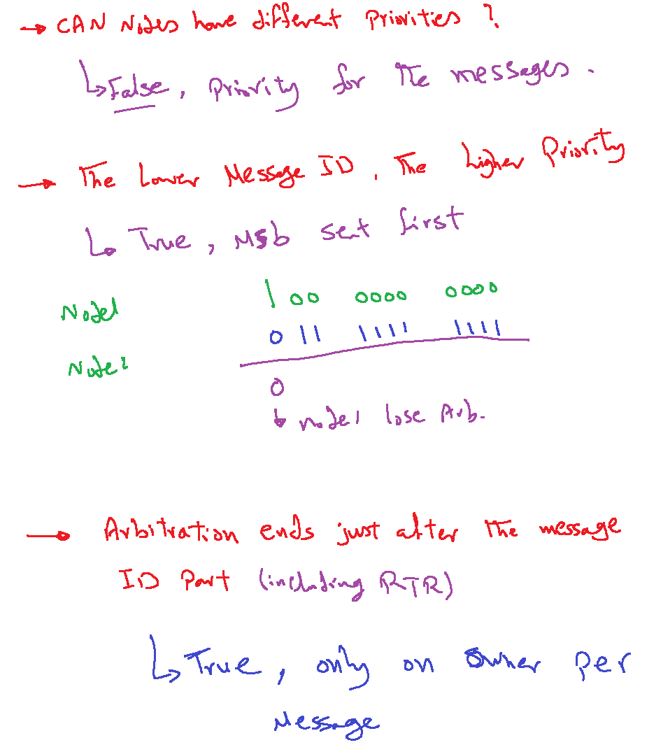 → CAN Nodes have different Priorities ?
↳ False, Priority for the messages.
→ The Lower Message ID, The Higher Priority
↳ True, Msb sent first
Node1 1 00 0000 0000
Node2 0 11 1111 1111
0
↓ node1 lose Arb.
→ Arbitration ends just after the message
ID Part (including RTR)
↳ True, only on owner per
Message